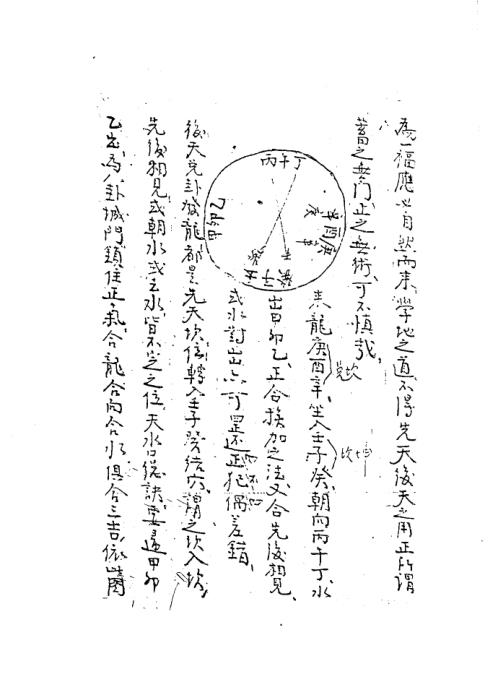 為一福應必自然而来、學地之道不得先天後天之用正所謂
蓄之無门、正之無術、可不慎哉、
丙午丁
乙卯甲
来龍庚酉辛、坐入壬子癸、朝向丙午丁、水
出甲卯乙、正合挨加之法、又合先後相見、
或水對出亦可罡还正犯偶差錯、
後天兌卦發龍都是先天坎位、轉入壬子癸结穴、謂之坎入坎、
先後相見或朝水或立水、皆不空之位、天水口總訣、要過甲卯
乙去、為八卦城門鎖住正氣、合龍合向合水俱合三吉、依山